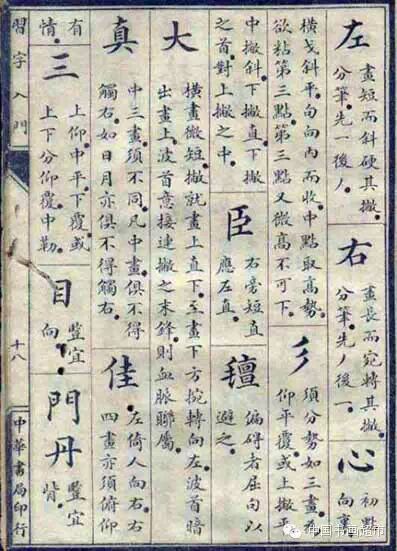 左
畫短而斜硬其撇
分筆先一後丿
右
畫長而宛轉其撇
分筆先丿後一
心
初點
向
橫戈斜平勾向內而收中點取高勢
欲粘第三點第三點又微高不可下
彡
須分勢如三畫存
仰平覆或上撇平
中撇斜下撇直下撇
之首對上撇之中
臣
右旁短直
應左直
偏碍者屈句以
避之
大
橫畫微短撇就畫上直下至畫下方捥轉向左波首暗
出畫上波首意接連撇之末鋒則血脈聯屬
真
中三畫須不同凡中畫俱不得
觸右如日月亦俱不得觸右
佳
左倚人向右右
四畫亦須俯仰
有
情
三
上仰中平下覆或
上下分仰覆中勒
目
豎宜
向
門丹
豎宜
背
習字入門
十八
中華書局印行
中国书画超市